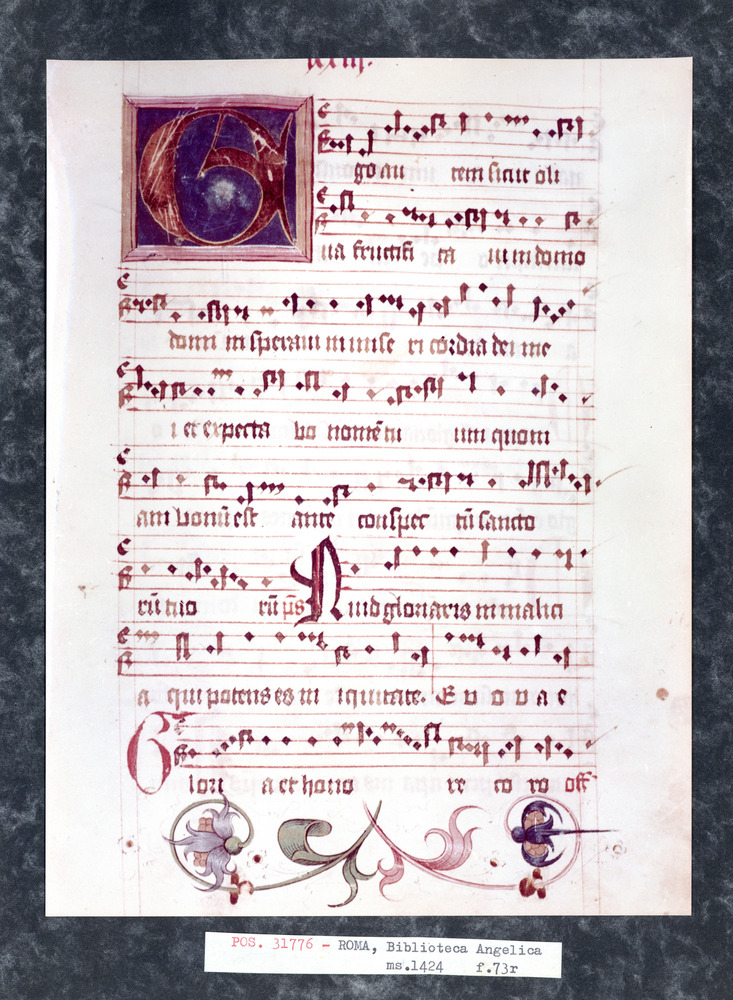 xxiii.
Ego au tem sicut oli
ua fructifi ca ui in domo
domi ni speraui in mise ri cordia dei me
i et expecta bo nomē tu um quoni
am bonū est ante conspec tū sancto
rū tuo rū p̄s Quid gloriaris in malici
a qui potens es in iquitate. E u o u a e
Glori a et hono re co ro off
POS. 31776 - ROMA, Biblioteca Angelica
ms.1424 f.73r